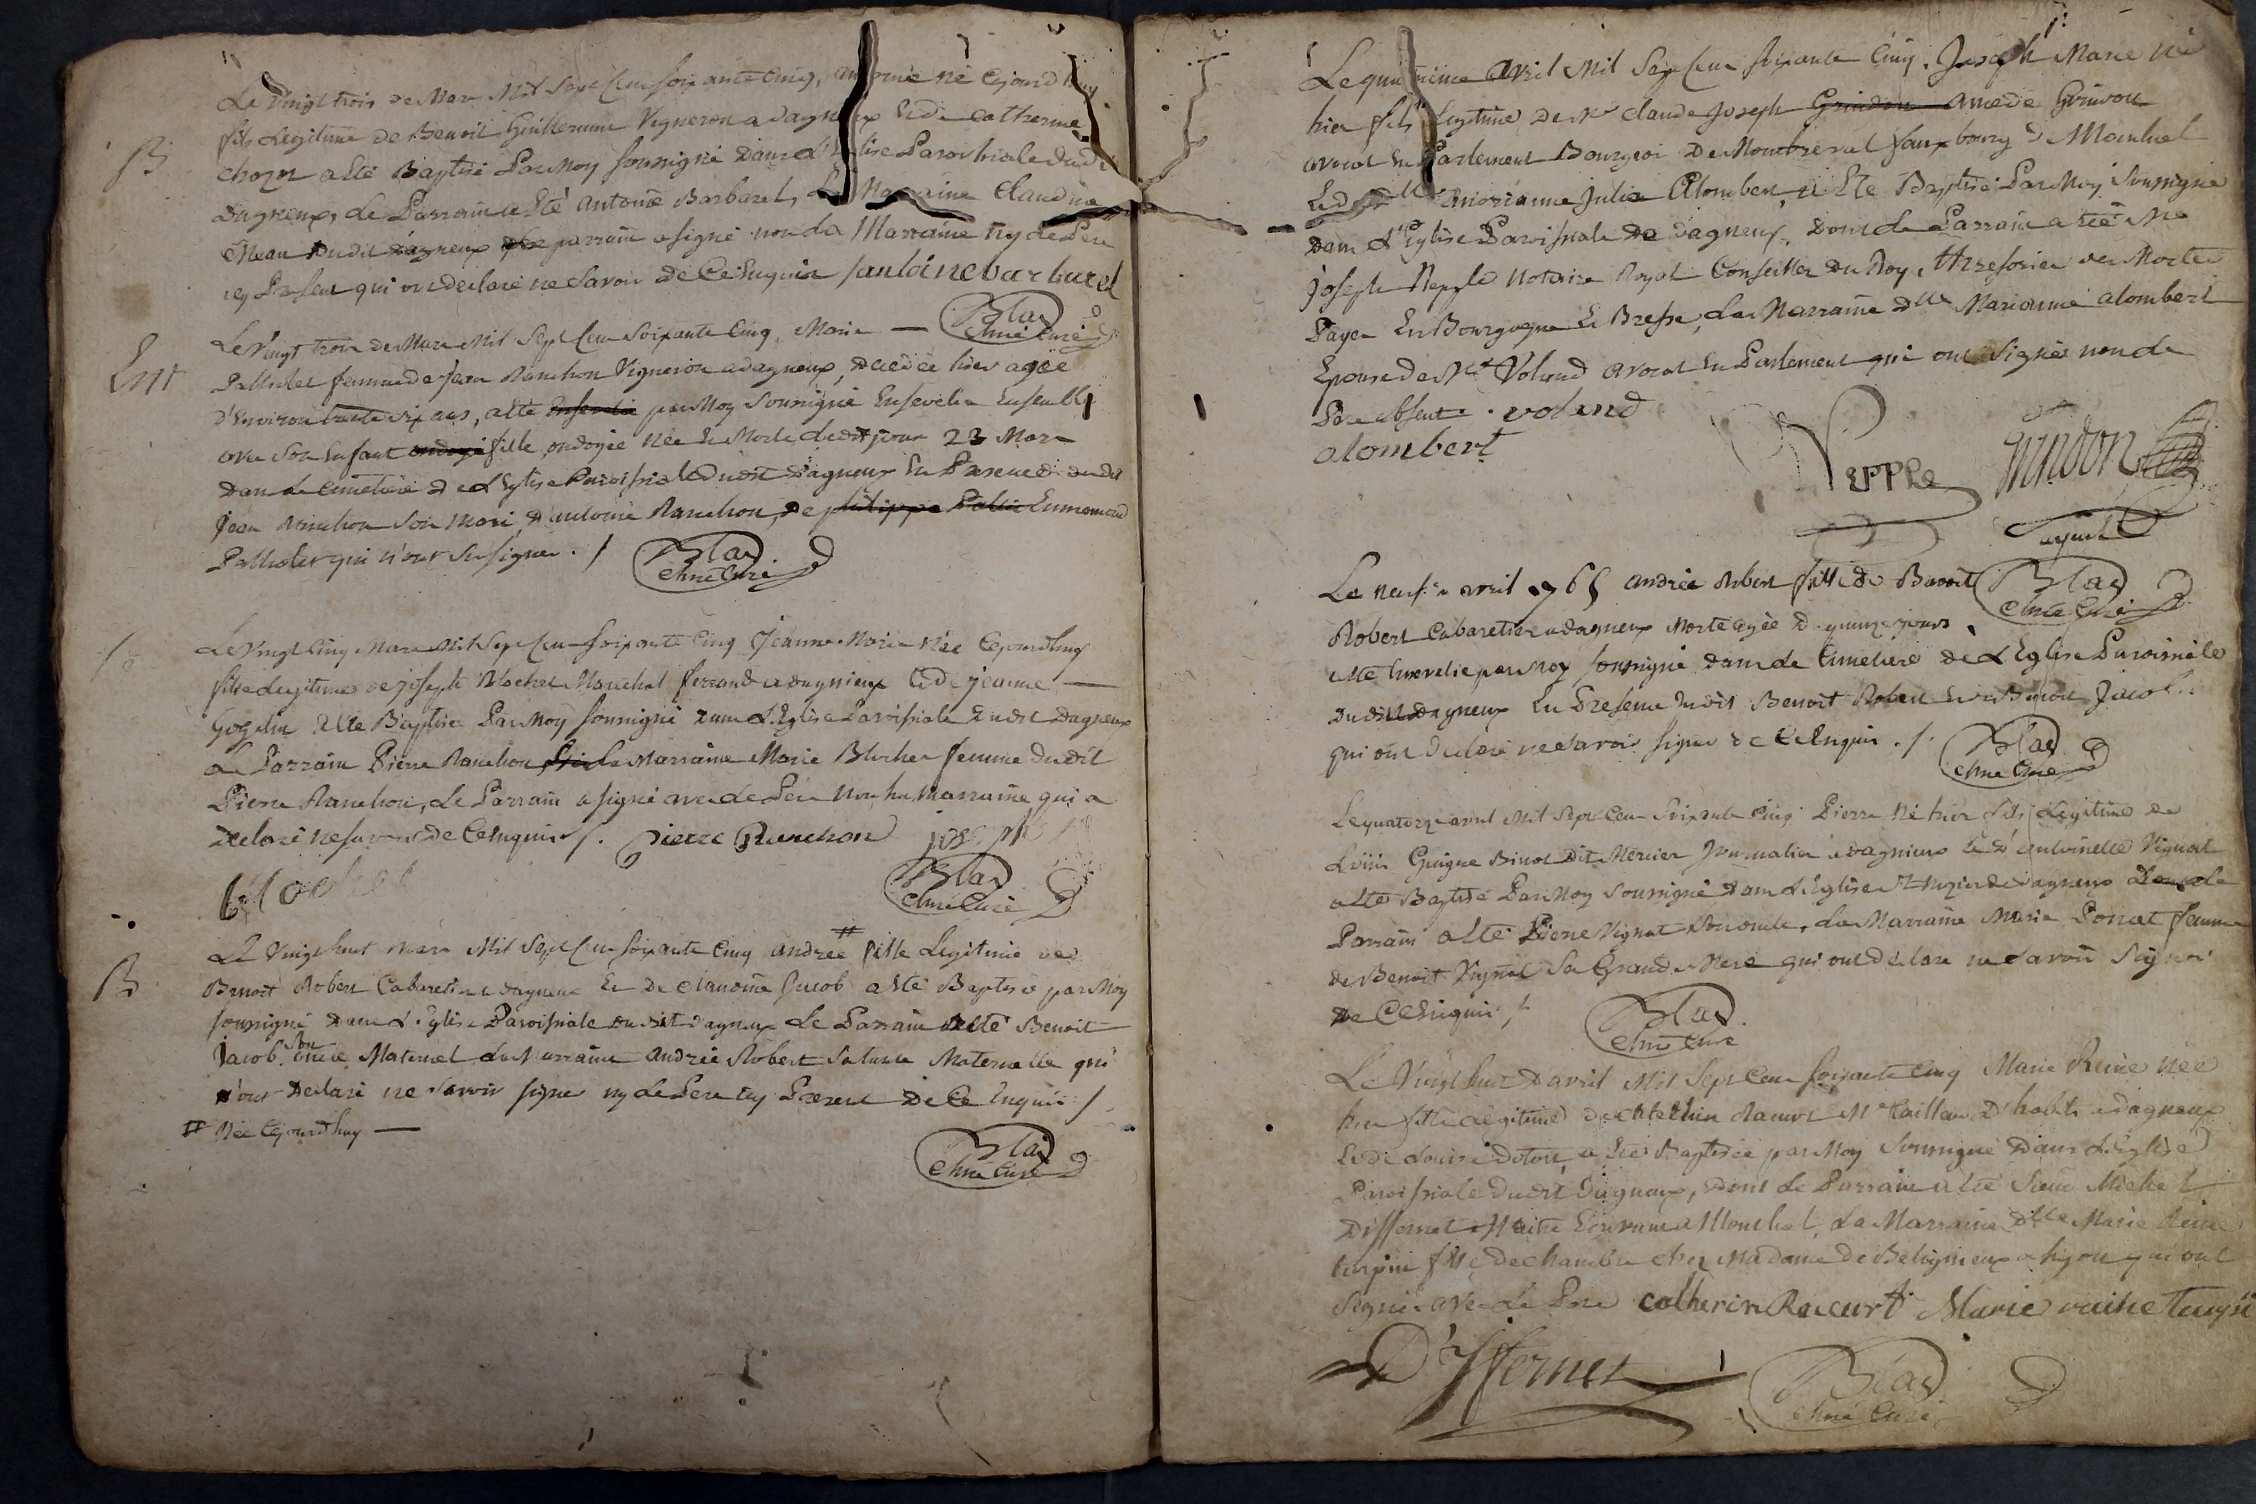 B
Le Vingt trois de Mars Mil Sept Cens soixante Cinq, antoine né Cejourdhuy
fils Legitime de Benoit Guillermin Vigneron a dagneux Et de Catherine
a Eté Baptisé Par Moy soussigné Dans L'Eglise Paroissiale dudit
Dagneux, Le Parrain a Eté Antoine Barbaret, La Marraine Claudine
dudit Dagneux parrain a signé non La Marraine ny Le Pere
icy Present qui ont declaré ne Savoir de Ce Enquis antoine barbaret
Blad
Chne Curé
Ent
Le Vingt trois de Mars Mil Sept Cens Soixante Cinq, Marie
femme de Jean Ranchon Vigneron a dagneux, decedée hier agée
D'Environ trente six ans, a Eté par Moy Soussigné Ensevelie Ensemble
avec Son Enfant fille ondoyée Née Et Morte dudit jour 23 Mars
Dans Le Cimetiere de L'Eglise Paroissiale Dudit Dagneux En Presence dudit
Jean Ranchon Son Mari, D'antoine Ranchon, De Ennemond
qui n'ont Su signer ./
Blad
Chne Curé
Le Vingt Cinq Mars Mil Sept Cens Soixante Cinq Jeanne Marie Née Cejourdhuy
fille Legitime de Joseph Blochet Marechal ferrand a dagnieux Et de jeanne
a Eté Baptisé Par Moy soussigné dans L'Eglise Paroissiale dudit Dagneux
Le Parrain Pierre Ranchon La Marraine Marie Blochet femme dudit
Pierre Ranchon, Le Parrain a signé avec Le Pere Non La marraine qui a
declaré ne savoir de Ce Enquis ./. pierre Ranchon joseph
Blochet
Blad
Chne Curé
B
Le Vingt huit Mars Mil Sept Cens soixante Cinq andrée # fille Legitime de
Benoit Robert Cabaretier a dagneux Et De Claudine Jacob a Eté Baptisée par Moy
soussigné Dans L'Eglise Paroissiale dudit dagneux Le Parrain a Eté Benoit
Jacob Son oncle Maternel La Marraine andrée Robert Sa tante Maternelle qui
n'ont Declaré ne Savoir signer ny Le Pere icy Present De Ce Enquis /.
# Née Cejourdhuy
Blad
Chne Curé
Le avril Mil Sept Cens soixante Cinq, Joseph Marie Né
hier fils Legitime De Mr Claude Joseph amede Grindon
avocat En Parlement Bourgeois De Montbreval fauxbourg de Montluel
Et de Dlle Marianne Julie Alombert, a Eté Baptisé Par Moy Soussigné
Dans L'Eglise Paroissiale De Dagneux, Dont Le Parrain a Eté Me
Joseph Repple Notaire Royal Conseiller Du Roy, thresorier des Mortes
Payes En Bourgogne Et Bresse, La Marraine Dlle Marianne alombert
Epouse de Mr Voland avocat En Parlement qui ont signés non Le
Pere absent. voland
alombert
Repple
Grindon
Blad
Chne Curé
Le neuf avril 1765 andrée Robert fille de Benoit
Robert Cabaretier a dagneux Morte agée De quinze jours
a Eté Ensevelie par Moy soussigné dans Le Cimetiere de L'Eglise Paroissiale
Dudit Dagneux En Presence dudit Benoit Robert Et de Benoit Jacob
qui ont declaré ne Savoir signer de Ce Enquis ./.
Blad
Chne Curé
Le quatorze avril Mil Sept Cens Soixante Cinq Pierre Né hier fils Legitime de
Loüis Guigue Binot Dit Mercier Journalier a dagnieux Et D'antoinette Vignat
a Eté Baptisé Par Moy Soussigné Dans L'Eglise de dagneux Dont Le
Parrain a Eté Pierre Vignat Son oncle, La Marraine Marie Ponat femme
de Benoit Vignat Sa Grand Mere qui ont déclaré ne Savoir Signer
De Ce Enquis ./
Blad
Chne Curé
Le Vingt huit D'avril Mil Sept Cens soixante Cinq Marie Reine Née
hier fille Legitime de Cathelin Racurt Me Tailleur D'habits a dagneux
Et de Louise a Eté Baptisée par Moy Soussigné Dans L'Eglise
Paroissiale dudit Dagneux, Dont Le Parrain a Eté Sieur Michel
Differnet Maitre Ecrivain a Montluel, La Marraine Dlle Marie Reine
turpin fille de Chambre Chez Madame De Beligneux a Lyon qui ont
Signé avec Le Pere catherin Racurt Marie reine Turpin
D'yffernet
Blad
Chne Curé